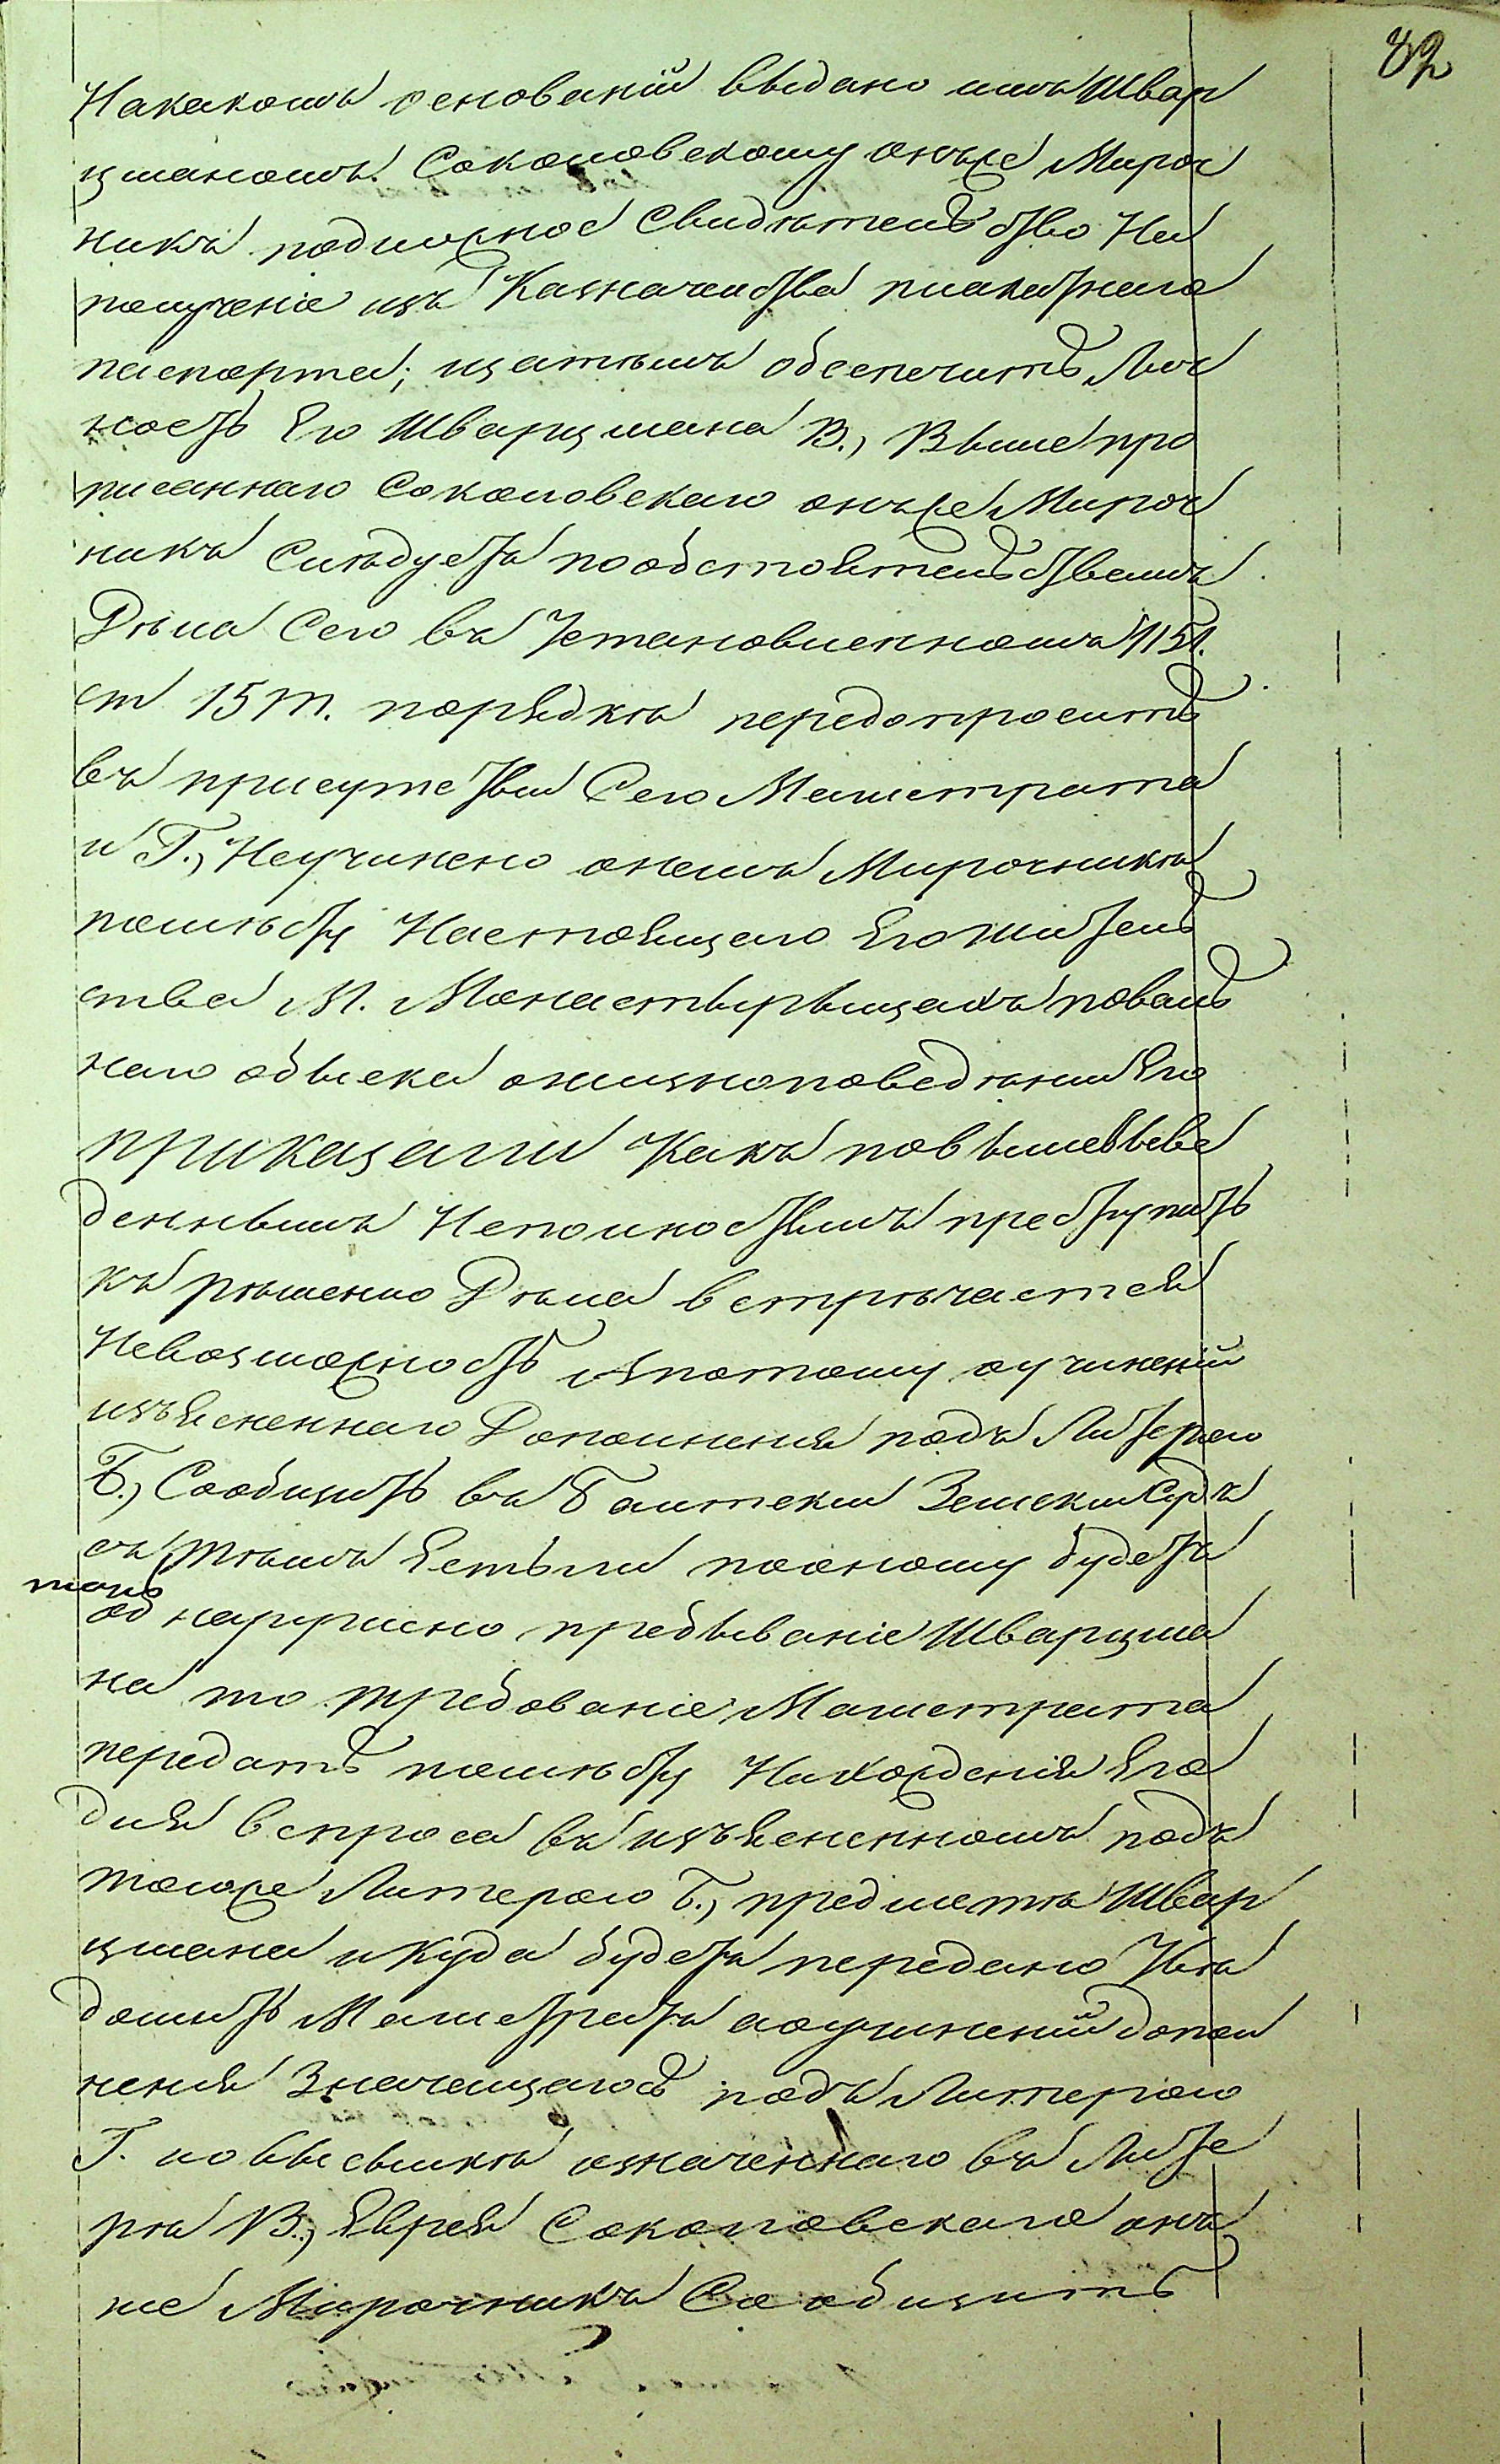 82
На какомъ основаніи выдано имъ Швар
цманомъ Соколовскому онъ же Мироч
никъ подложное свидѣтельство На
полученіе изъ Казначейства плакатнаго
паспорта; и затѣмъ обеспечить Лич
ность Его Шварцмана В., Выше про
писаннаго Соколовскаго онъ же Мироч
никъ Слѣдуетъ по обстоятельствамъ
Дѣла Сего въ Установленномъ 1151.
ст 15 т. порядкѣ передопросить
въ присутствіи Сего Магистрата
и Г., Не учинено о немъ Мирочникѣ
по мѣсту Настоящаго Его жител
ства М. Монастырыщахъ повал
наго обыска о жизноповедѣнии Его
приказали Какъ повышевыве
деннымъ Неполностямъ преступить
къ рѣшенію Дѣла встрѣчается
Невозможность и потому о учинении
изъясненнаго Дополненія подъ Литерою
Б., Сообщить въ Балтский Земский Судъ
съ тѣмъ Естьли по оному будетъ
только
обнаружено пребываніе Шварцма
на то требованіе Магистрата
передать по мѣсту Нахожденія Его
для вспроса въ изъясненномъ подъ
тоюже Литерою Б., предметѣ Швар
цмана и куда будетъ передано Уве
домить Магистратъ а о учинении допол
ненія Значащагось подъ Литерою
Г. и о высылкѣ означеннаго въ Лите
рѣ В., Еврея Соколовскаго онъ
же Мирочникъ Сообщить